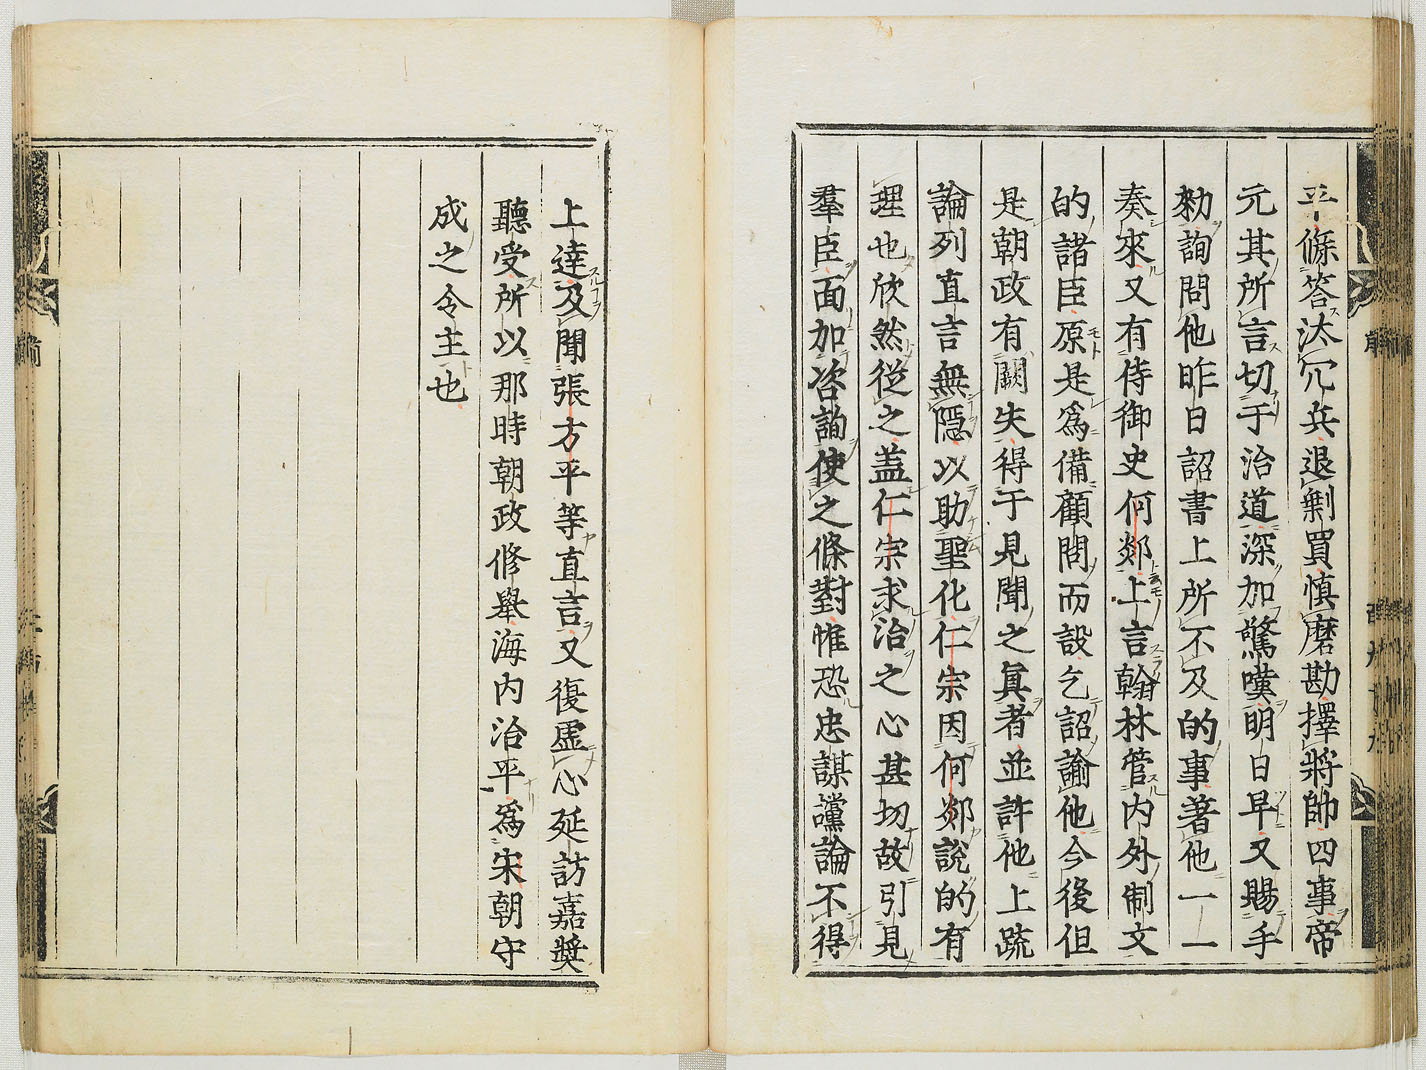 平條答汰冗兵退剩買慎磨勘擇將帥四事帝
元其所言切于治道深加驚嘆明日早又賜手
勑詢問他昨日詔書上所不及的事著他一一
奏來又有侍御史何郯上言翰林管內外制文
的諸臣原是爲備顧問而設乞詔諭他今後但
是朝政有闕失得于見聞之眞者並許他上疏
論列直言無隱以助聖化仁宗因何郯說的有
理也欣然從之蓋仁宗求治之心甚切故引見
羣臣面加咨詢使之條對惟恐忠謀讜論不得
上達及聞張方平等直言又復虛心延訪嘉奬
聽受所以那時朝政修舉海內治平爲宋朝守
成之令主也